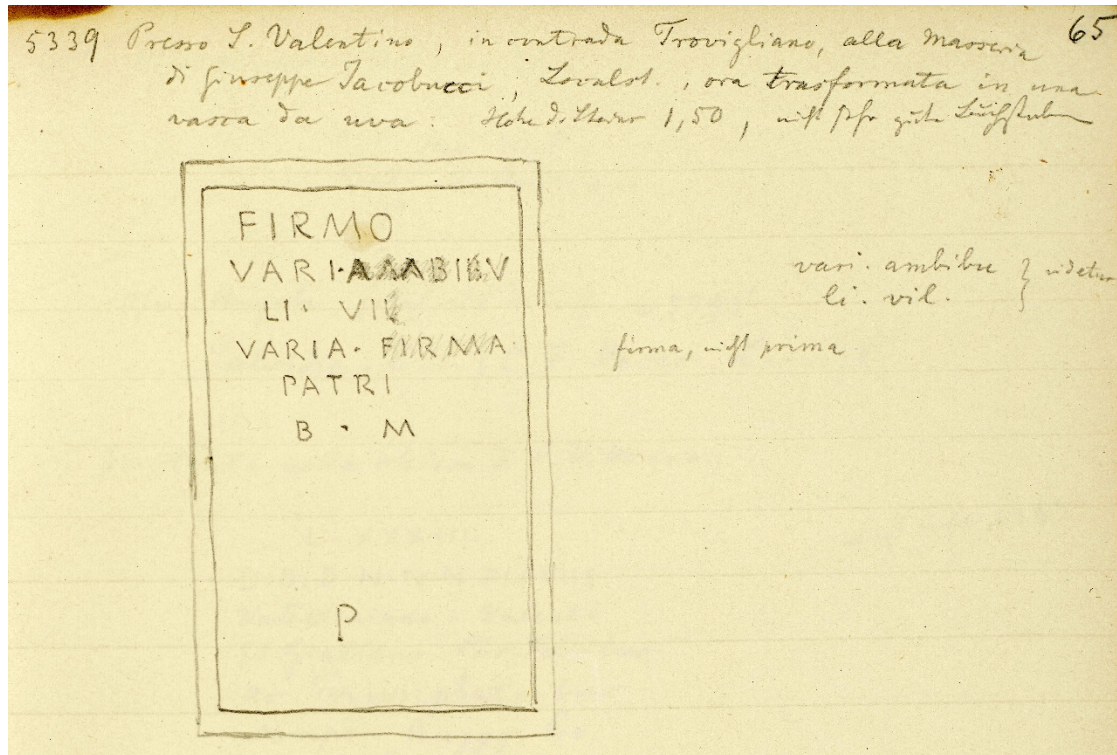 65
5339 Presso S. Valentino, in contrada Trovigliano, alla Masseria
di Giuseppe Iacobucci, , ora trasformata in una
vasca da uva. Höhe 1,50, nicht sehr gute Buchstaben
FIRMO
VARI·AMBIBV
LI· VIL
VARIA· FIRMA
PATRI
B · M
P
vari. ambibu } videtur
li. vil.
firma, nicht prima